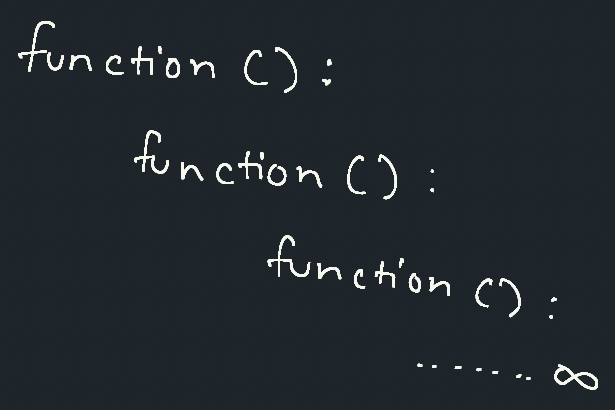 function ():
function ():
function ():
........ ∞